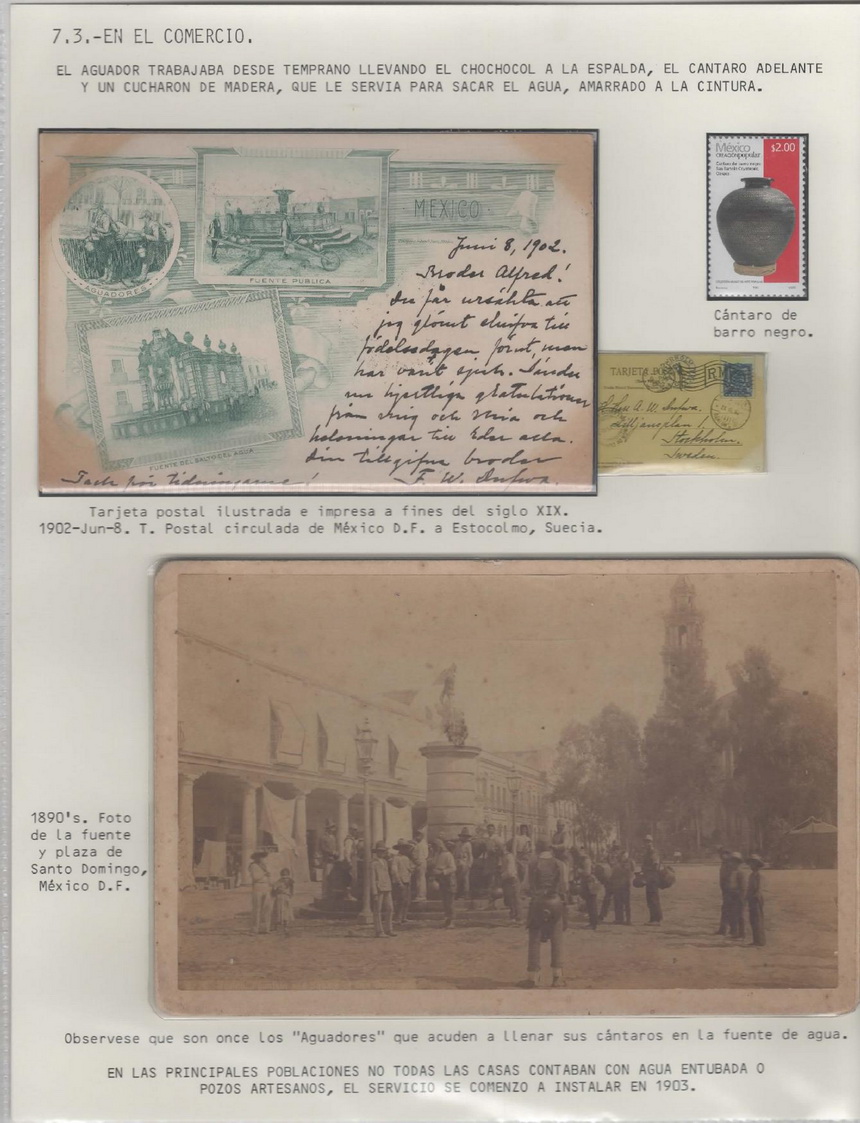 7.3.-EN EL COMERCIO.
EL AGUADOR TRABAJABA DESDE TEMPRANO LLEVANDO EL CHOCHOCOL A LA ESPALDA, EL CANTARO ADELANTE
Y UN CUCHARON DE MADERA, QUE LE SERVIA PARA SACAR EL AGUA, AMARRADO A LA CINTURA.
AGUADORES
FUENTE PUBLICA
MEXICO
FUENTE DEL SALTO EL AGUA
Juni 8, 1902.
Broder Alfred!
Du får ursäkta att
jag glömt skrifva till
födelsedagen förut, men
har varit sjuk. Sänder
nu hjertliga gratulationer
från mig och Mia och
helsningar till Eder alla.
Din tillgifna broder
F. W.
Tack för tidningarne!
México
creación popular
$2.00
Cántaro de barro negro
Cántaro de
barro negro.
TARJETA
RM
A. W.
Lilljansplan 1,
Stockholm.
Sweden.
Tarjeta postal ilustrada e impresa a fines del siglo XIX.
1902-Jun-8. T. Postal circulada de México D.F. a Estocolmo, Suecia.
1890's. Foto
de la fuente
y plaza de
Santo Domingo,
México D.F.
Observese que son once los "Aguadores" que acuden a llenar sus cántaros en la fuente de agua.
EN LAS PRINCIPALES POBLACIONES NO TODAS LAS CASAS CONTABAN CON AGUA ENTUBADA O
POZOS ARTESANOS, EL SERVICIO SE COMENZO A INSTALAR EN 1903.